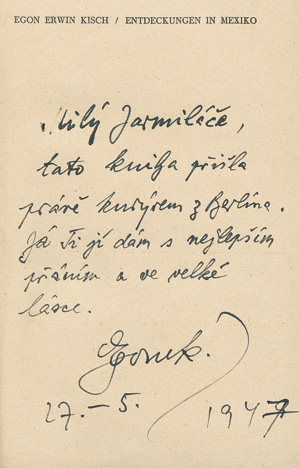 EGON ERWIN KISCH / ENTDECKUNGEN IN MEXIKO
Milý Jarmiláče,
tato kniha přišla
právě kurýrem z Berlína.
Já Ti ji dám s nejlepším
přáním a ve velké
lásce.
Egonek.
27. – 5. 1947